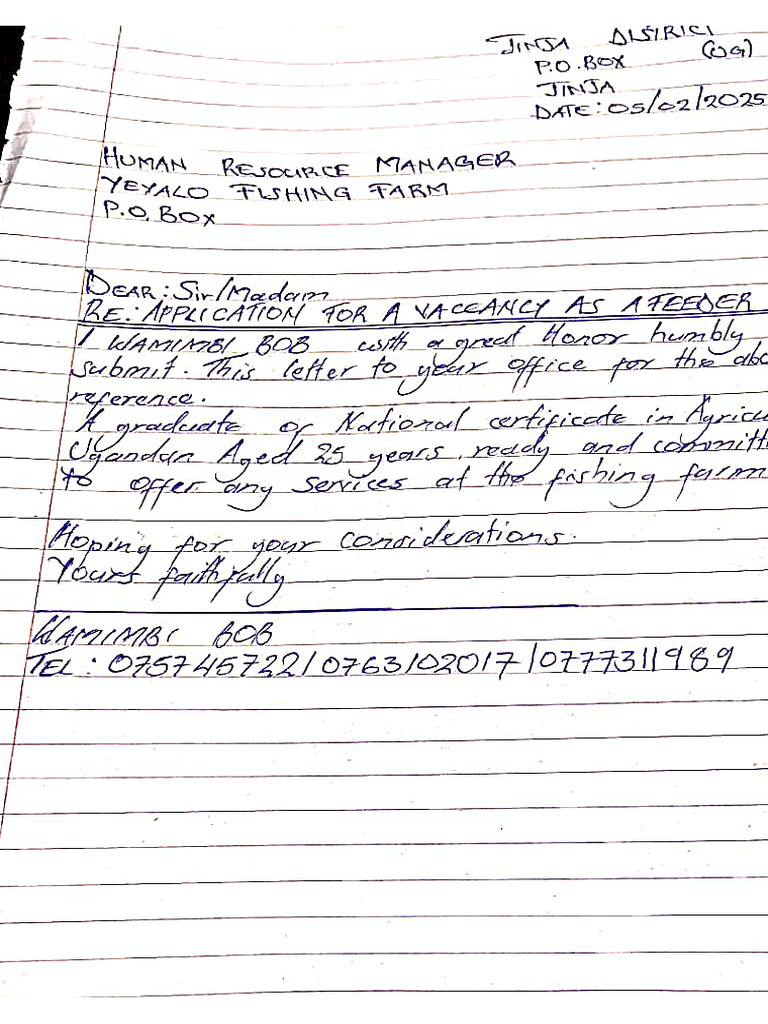 JINJA DISTRICT
P.O.BOX (UG)
JINJA
DATE: 05/02/2025
HUMAN RESOURCE MANAGER
YEYALO FISHING FARM
P.O. BOX
DEAR: Sir/Madam
RE: APPLICATION FOR A VACCANCY AS A FEEDER
I WAMIMBI BOB with a great Honor humbly
submit. This letter to your office for the abo
reference.
A graduate of National certificate in Agricu
Ugandan Aged 25 years ready and committ
to offer any services at the fishing farm
Hoping for your considerations.
Yours faithfully
WAMIMBI BOB
TEL: 075745722/0763102017/0777311989